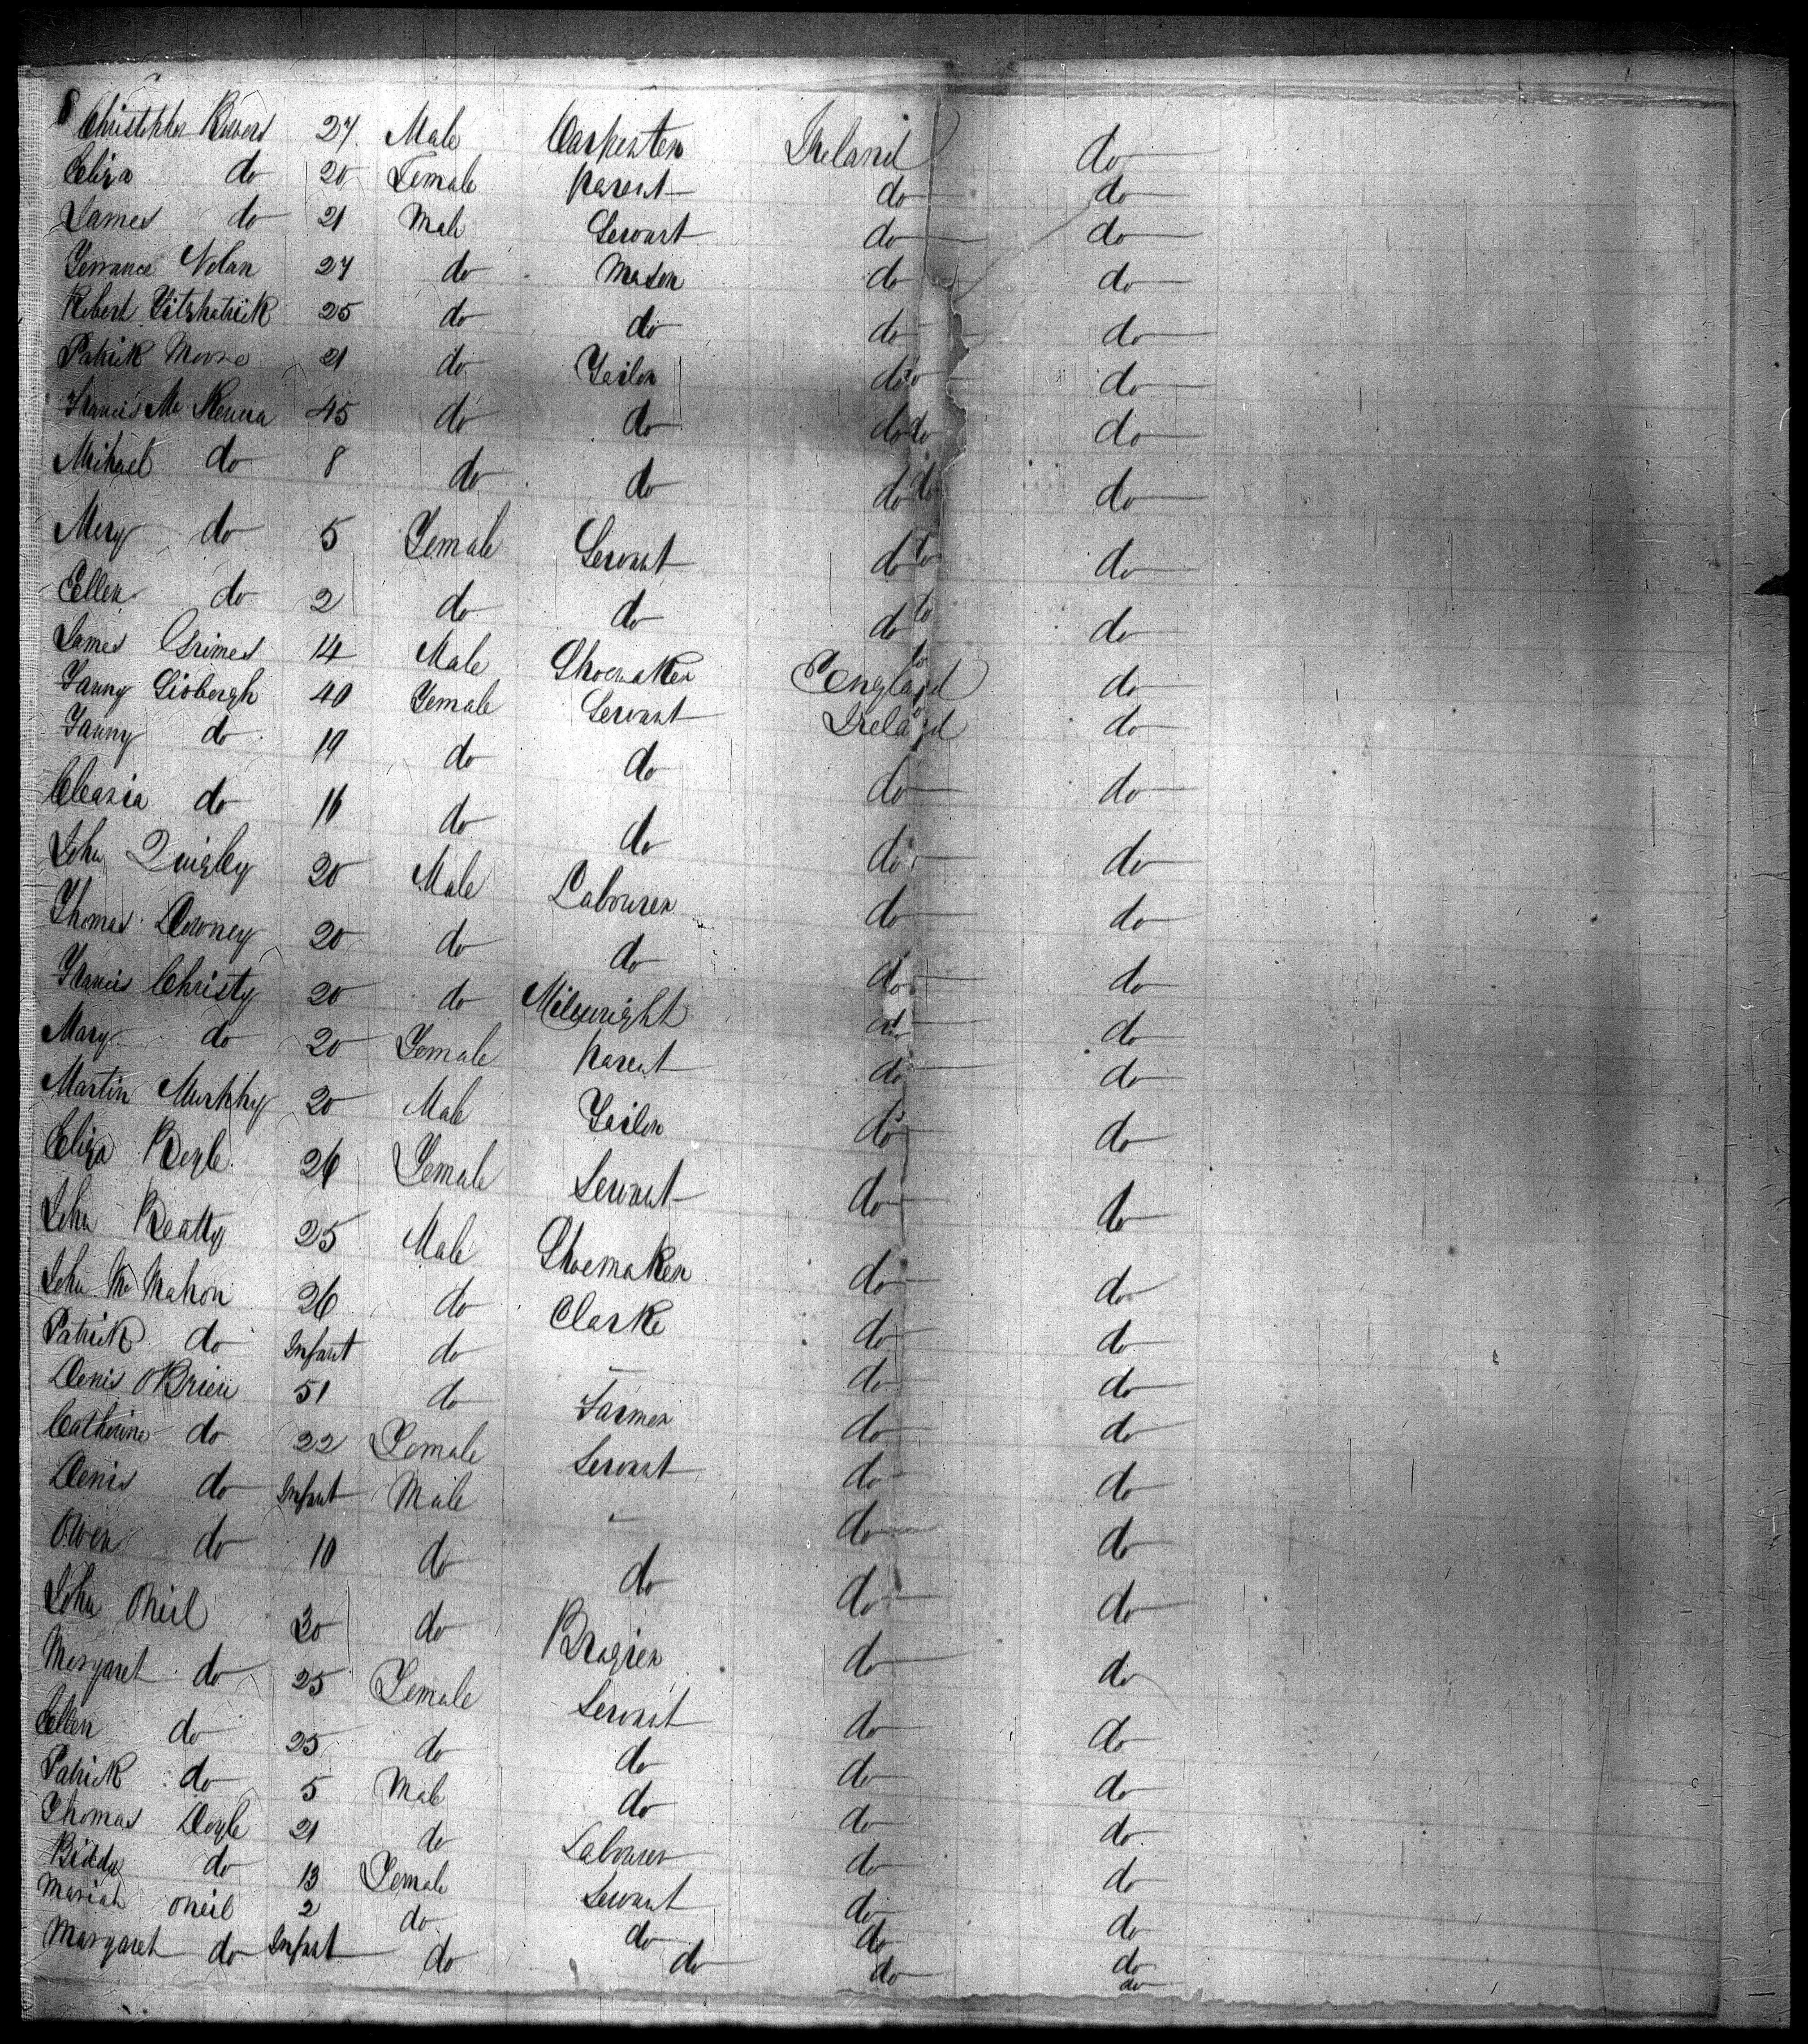 8 Christopher 27 Male Carpenter Ireland do
Eliza do 20 Female parent do do
James do 21 Male Servant do do
Terrance Nolan 27 do Mason do do
Robert Fitzpatrick 25 do do do do
Patrick Moore 21 do Tailor do do
Francis Mc Kenna 45 do do do do
Mihael do 8 do do do do
Mary do 5 Female Servant do do
Ellen do 2 do do do do
James Grimes 14 Male Shoemaker England do
Fanny 40 Female Servant Ireland do
Fanny do 19 do do do do
do 16 do do do do
John Quigley 20 Male Labourer do do
Thomas Downey 20 do do do do
Francis Christy 20 do Milwright do do
Mary do 20 Female parent do do
Martin Murphy 20 Male Tailor do do
Eliza Boyle 26 Female Servant do do
John Beatty 25 Male Shoemaker do do
John Mc Mahon 26 do Clarke do do
Patrick do Infant do — do do
Denis OBrien 51 do Farmer do do
Catherine do 22 Female Servant do do
Denis do Infant Male — do do
Owen do 10 do do do do
John Oneil 30 do Brazier do do
Margaret do 25 Female Servant do do
Ellen do 25 do do do do
Patrick do 5 Male do do do
Thomas Doyle 21 do Labourer do do
Biddy do 13 Female Servant do do
Mariah Oneil 2 do do do do
Margaret do Infant do do do do
do